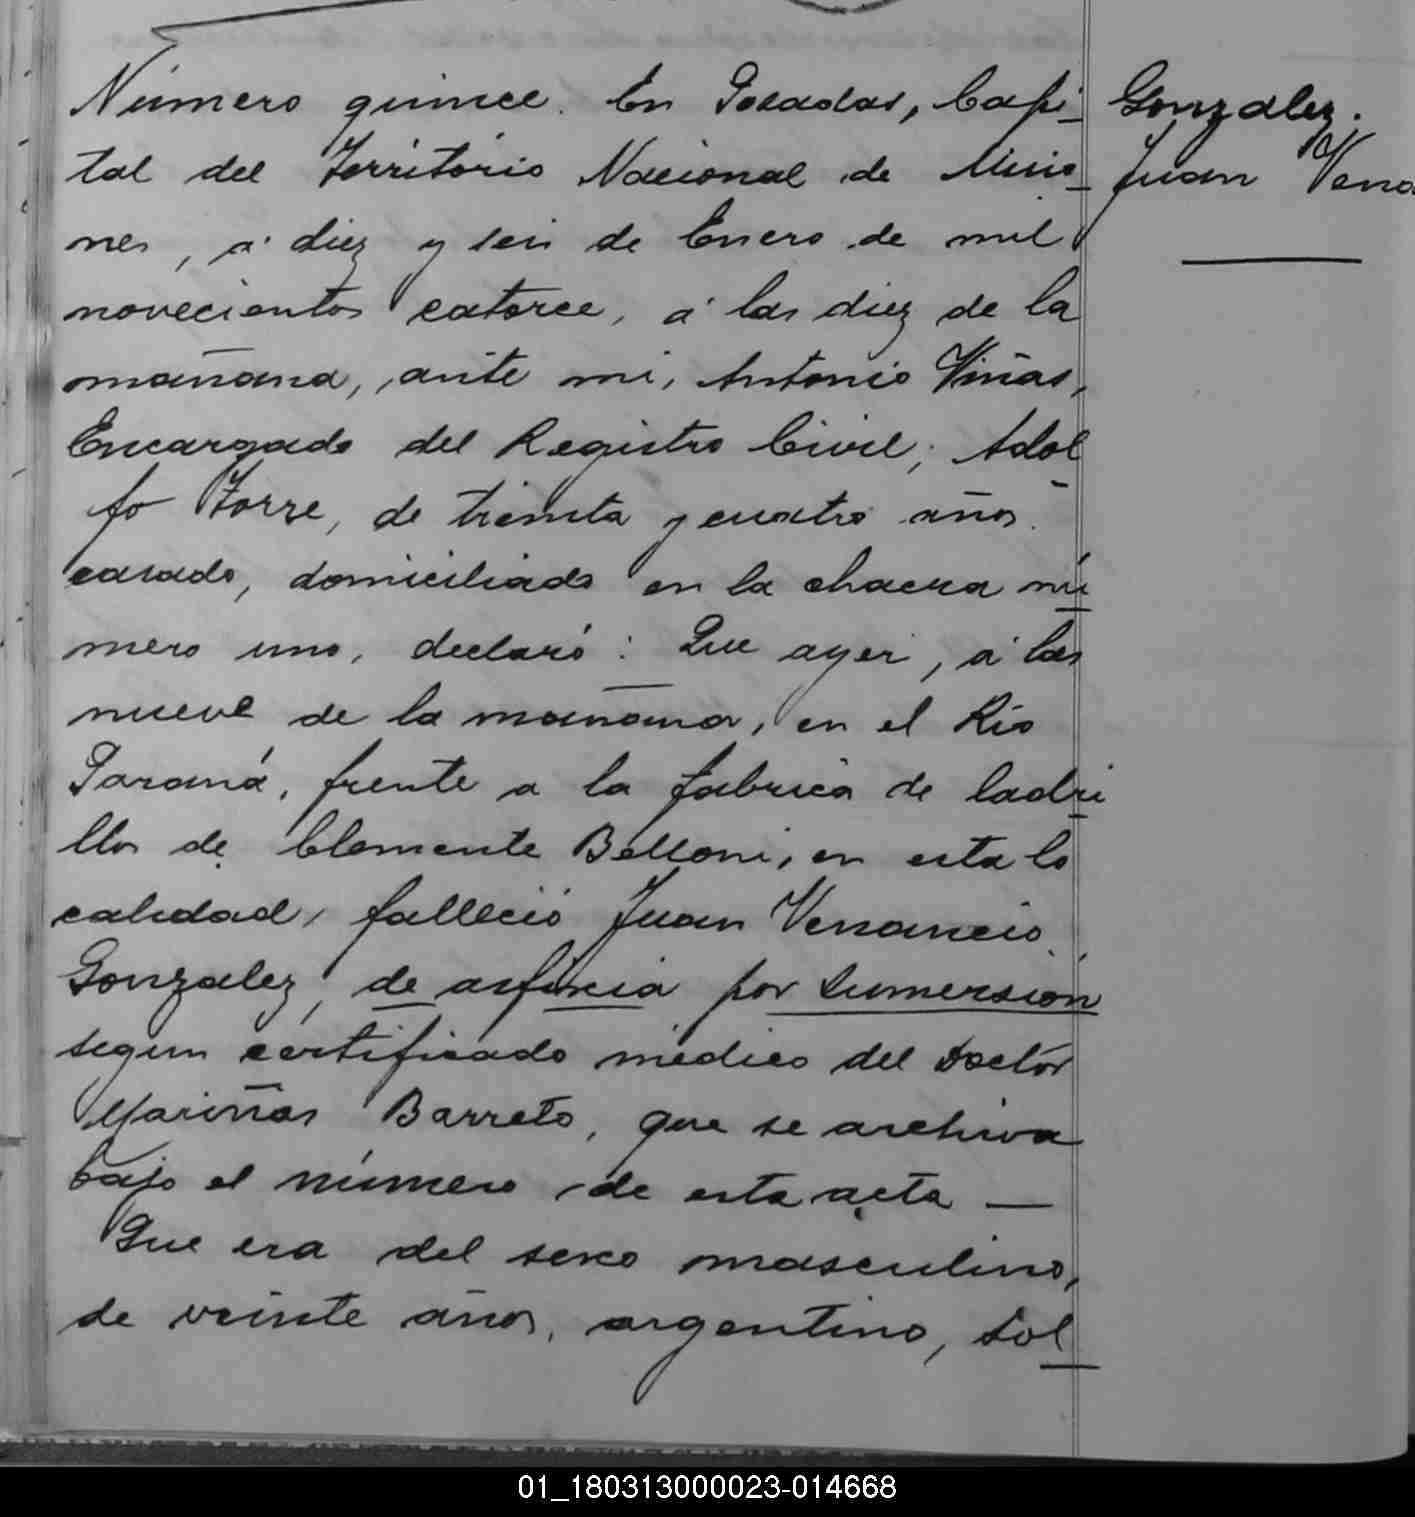 Número quince. En Posadas, Capi-
tal del Territorio Nacional de Misio-
nes, á diez y seis de Enero de mil
novecientos catorce, á las diez de la
mañana, ante mi, Antonio Viñas,
Encargado del Registro Civil; Adol-
fo Torre, de treinta y cuatro años.
casado, domiciliado en la chacra nú-
mero uno, declaró: Que ayer, á las
nueve de la mañana, en el Rio
Paraná, frente a la fabrica de ladri-
llos de Clemente Belloni, en esta lo
calidad, falleció Juan Venancio
Gonzalez, de asfixia por sumersión
segun certificado médico del Doctor
Mariñas Barreto, que se archiva
bajo el número de esta acta —
Que era del sexo masculino,
de veinte años, argentino, sol-
Gonzalez.
Juan Vena
01_180313000023-014668